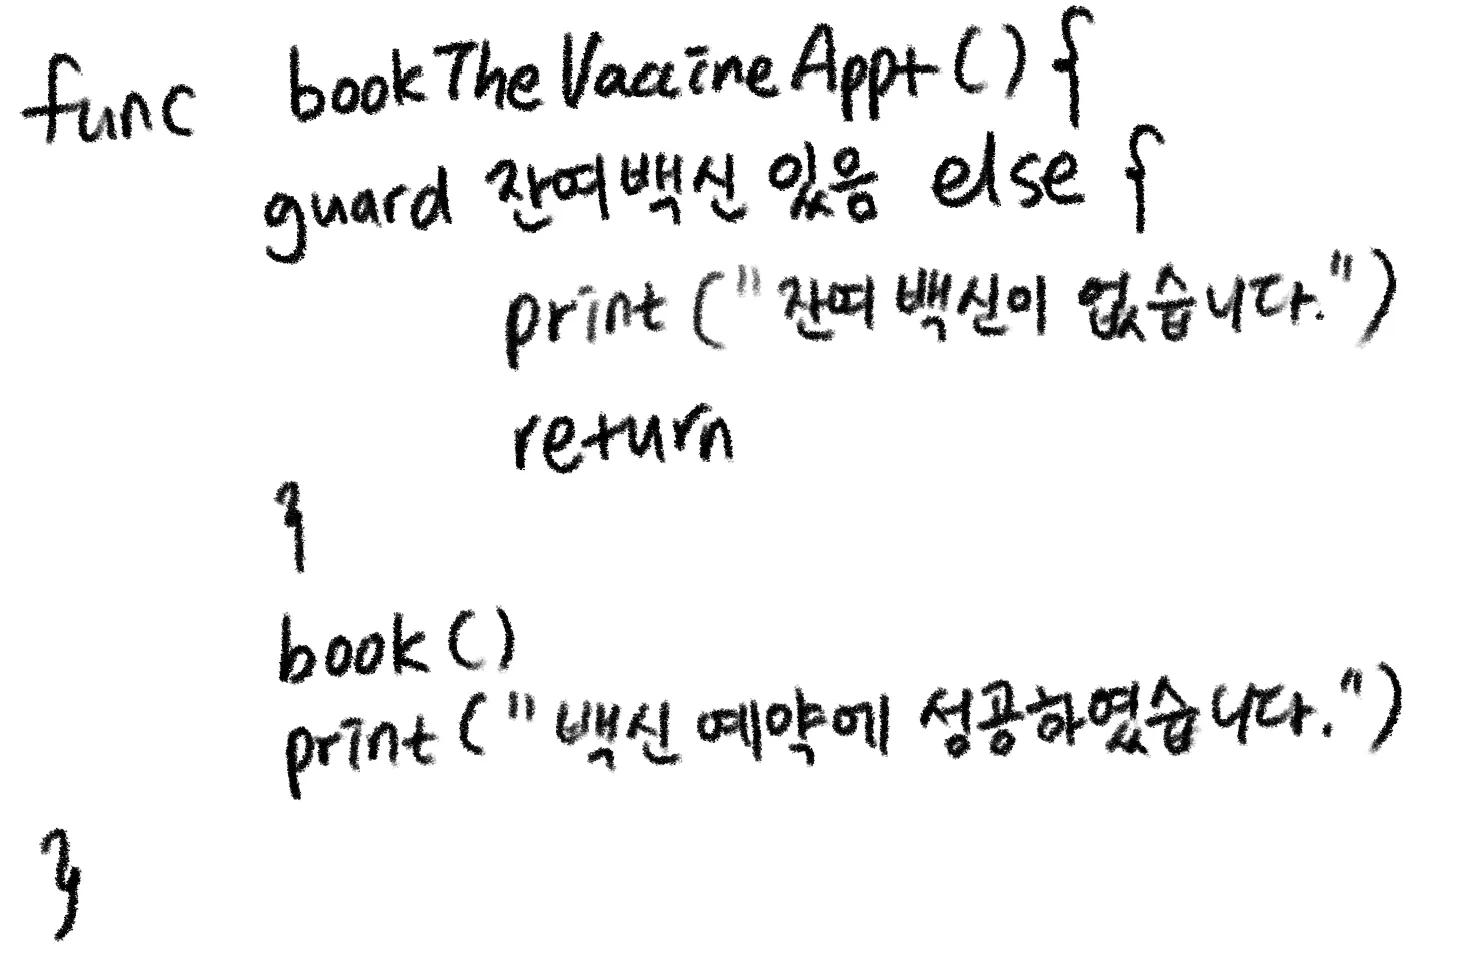 func bookTheVaccineAppt() {
guard 잔여백신 있음 else {
print("잔여 백신이 없습니다.")
return
}
book()
print("백신 예약에 성공하였습니다.")
}